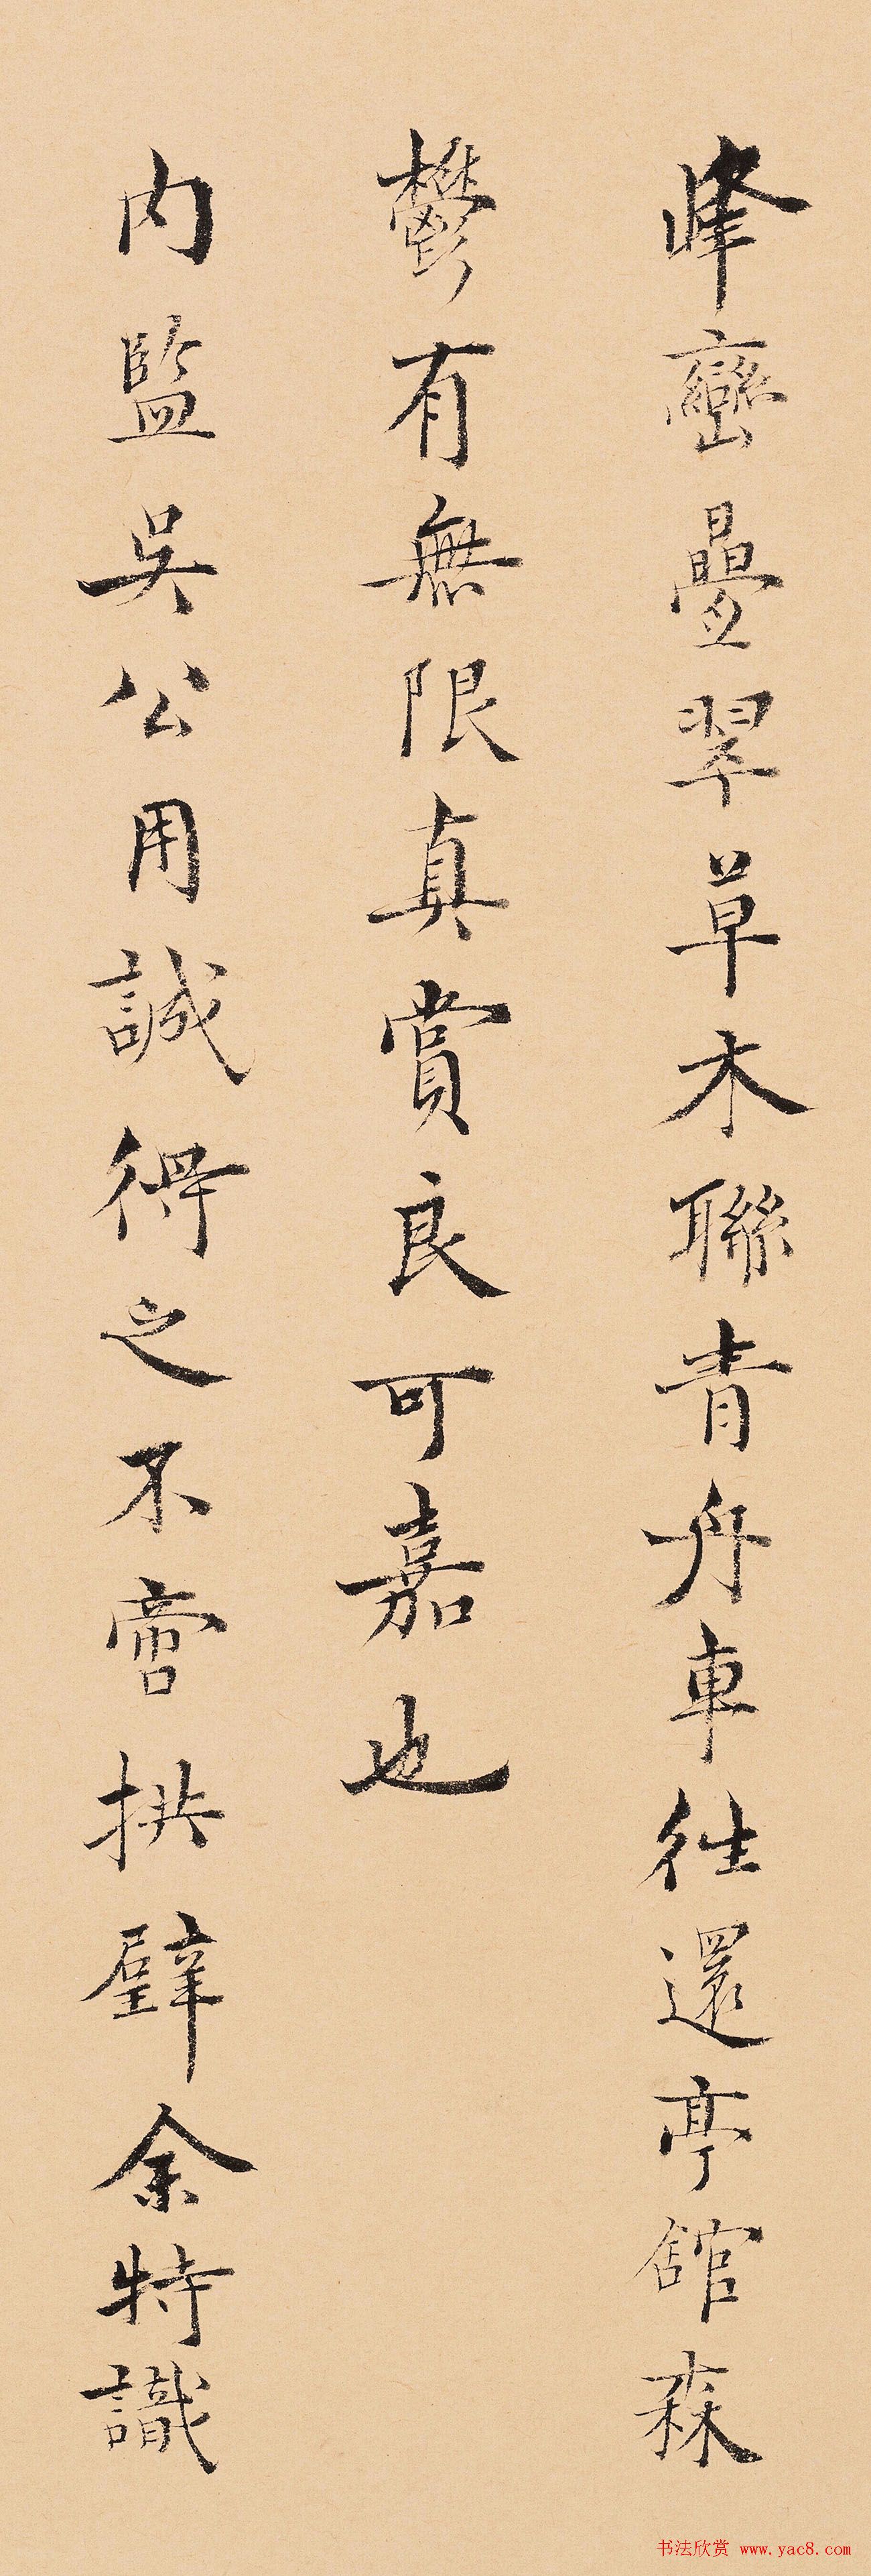 峰巒疊翠草木聯青舟車往還亭舘森
鬱有無限真賞良可嘉也
內監吳公用誠得之不啻拱璧余特識
书法欣赏 www.yac8.com